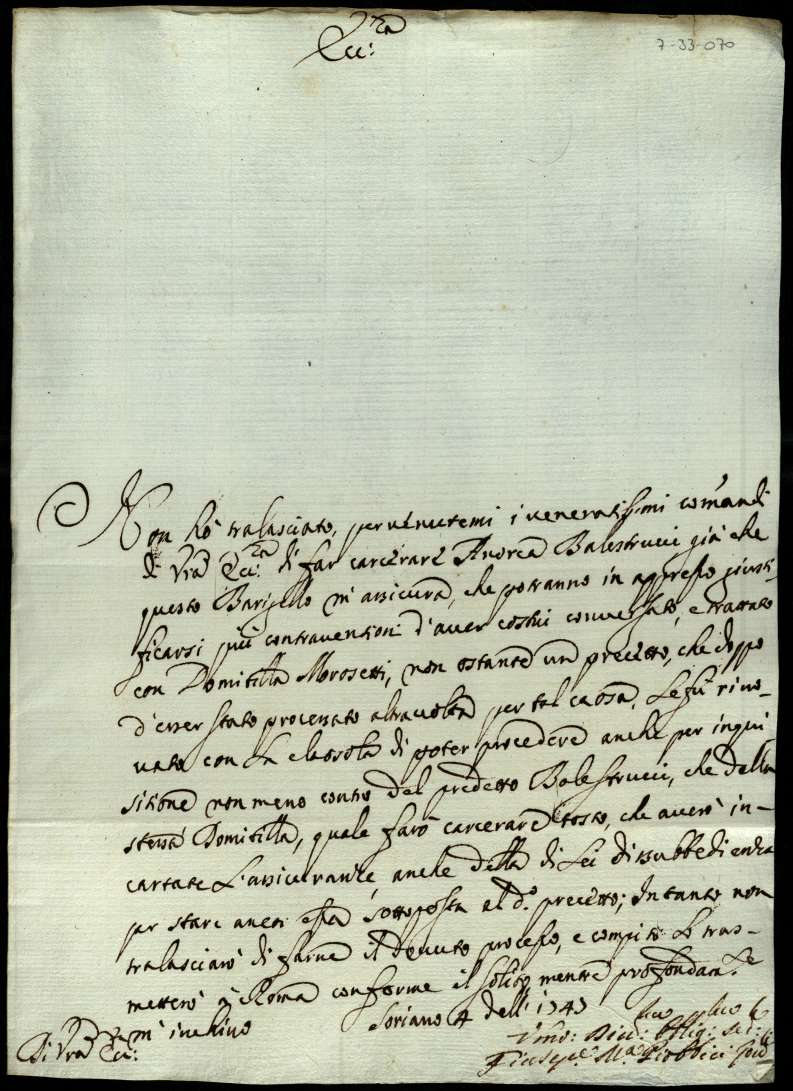 Ecc:za
7-33-070
Non hò tralasciato, pervenutemi i veneratissimi comandi
di Vrã Ecc:za di far carcerare Andrea Balestrucci già che
questo Barigello m'assicura, che potranno in appresso giusti-
ficarsi più contraventioni d'aver costui conversato, e trattato
con Domitilla Morosetti, non ostante un precetto, che doppo
d'esser stato processato altra volta per tal causa, Le fù rino-
vato con La clausola di poter procedere anche per inqui
sitione non meno contro del predetto Balestrucci, che della
stessa Domitilla, quale farò carcerare tosto, che averò in-
cartate L'assicuranze, anche della di Lei disubbedienza
per stare ancor essa sottoposta al d.º precetto; Intanto non
tralasciarò di farne il dovuto processo, e compito Lo tras-
metterò à Roma conforme il solito, mentre profondam.te
m'inchino
Di Vrã Ecc:za
Soriano 4 dell: 1743
Vmo: Div: Obblig: Ser:
Giuseppe M.a